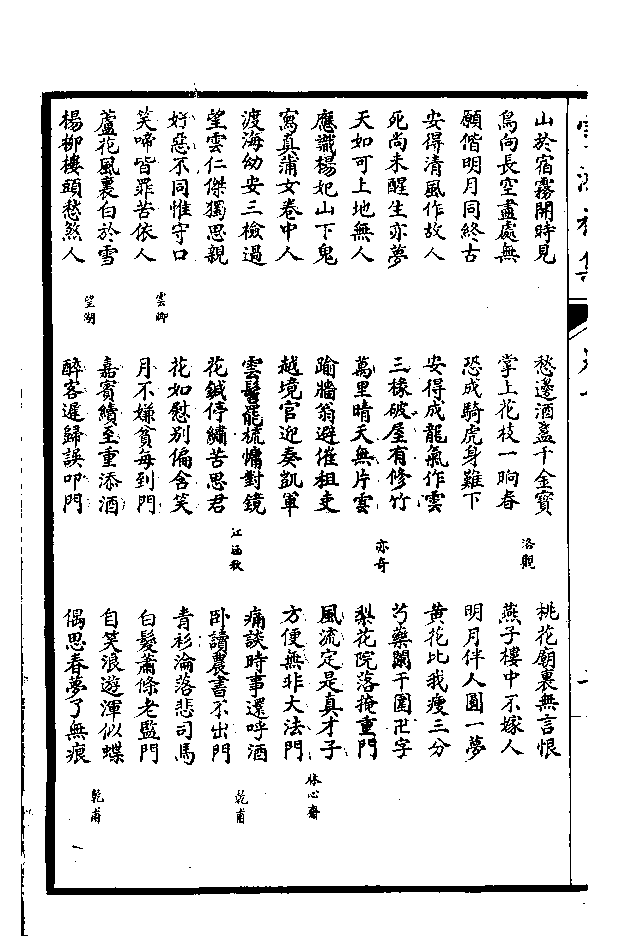 山於宿霧開時見
鳥向長空盡處無
願偕明月同終古
安得清風作故人
死尚未醒生亦夢
天如可上地無人
應識楊妃山下鬼
寫真蒲女卷中人
渡海幼安三檢過
望雲仁傑獨思親
好惡不同惟守口
笑啼皆罪苦依人
雲卿
蘆花風裏白於雪
楊柳樓頭愁煞人
望湖
愁邊酒盞千金寶
掌上花枝一晌春
洛觀
恐成騎虎身難下
安得成龍氣作雲
三椽破屋有修竹
萬里晴天無片雲
亦奇
踰牆翁避催租吏
越境官迎奏凱軍
雲髻罷梳慵對鏡
花鍼停繡苦思君
江涵秋
花如慰別偏含笑
月不嫌貧每到門
嘉賓續至重添酒
醉客遲歸誤叩門
桃花廟裏無言恨
燕子樓中不嫁人
明月伴人圓一夢
黃花比我瘦三分
芍藥闌干圍卍字
梨花院落掩重門
風流定是真才子
方便無非大法門
休心齋
痛談時事還呼酒
臥讀農書不出門
乾甫
青衫淪落悲司馬
白髮蕭條老監門
自笑浪遊渾似蝶
偶思春夢了無痕
乾甫